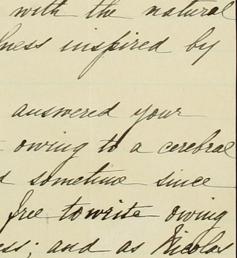 with the natural
ness inspired by
answered your
owing to a cerebral
d sometime since
free to write owing
ess; and as Nicolas